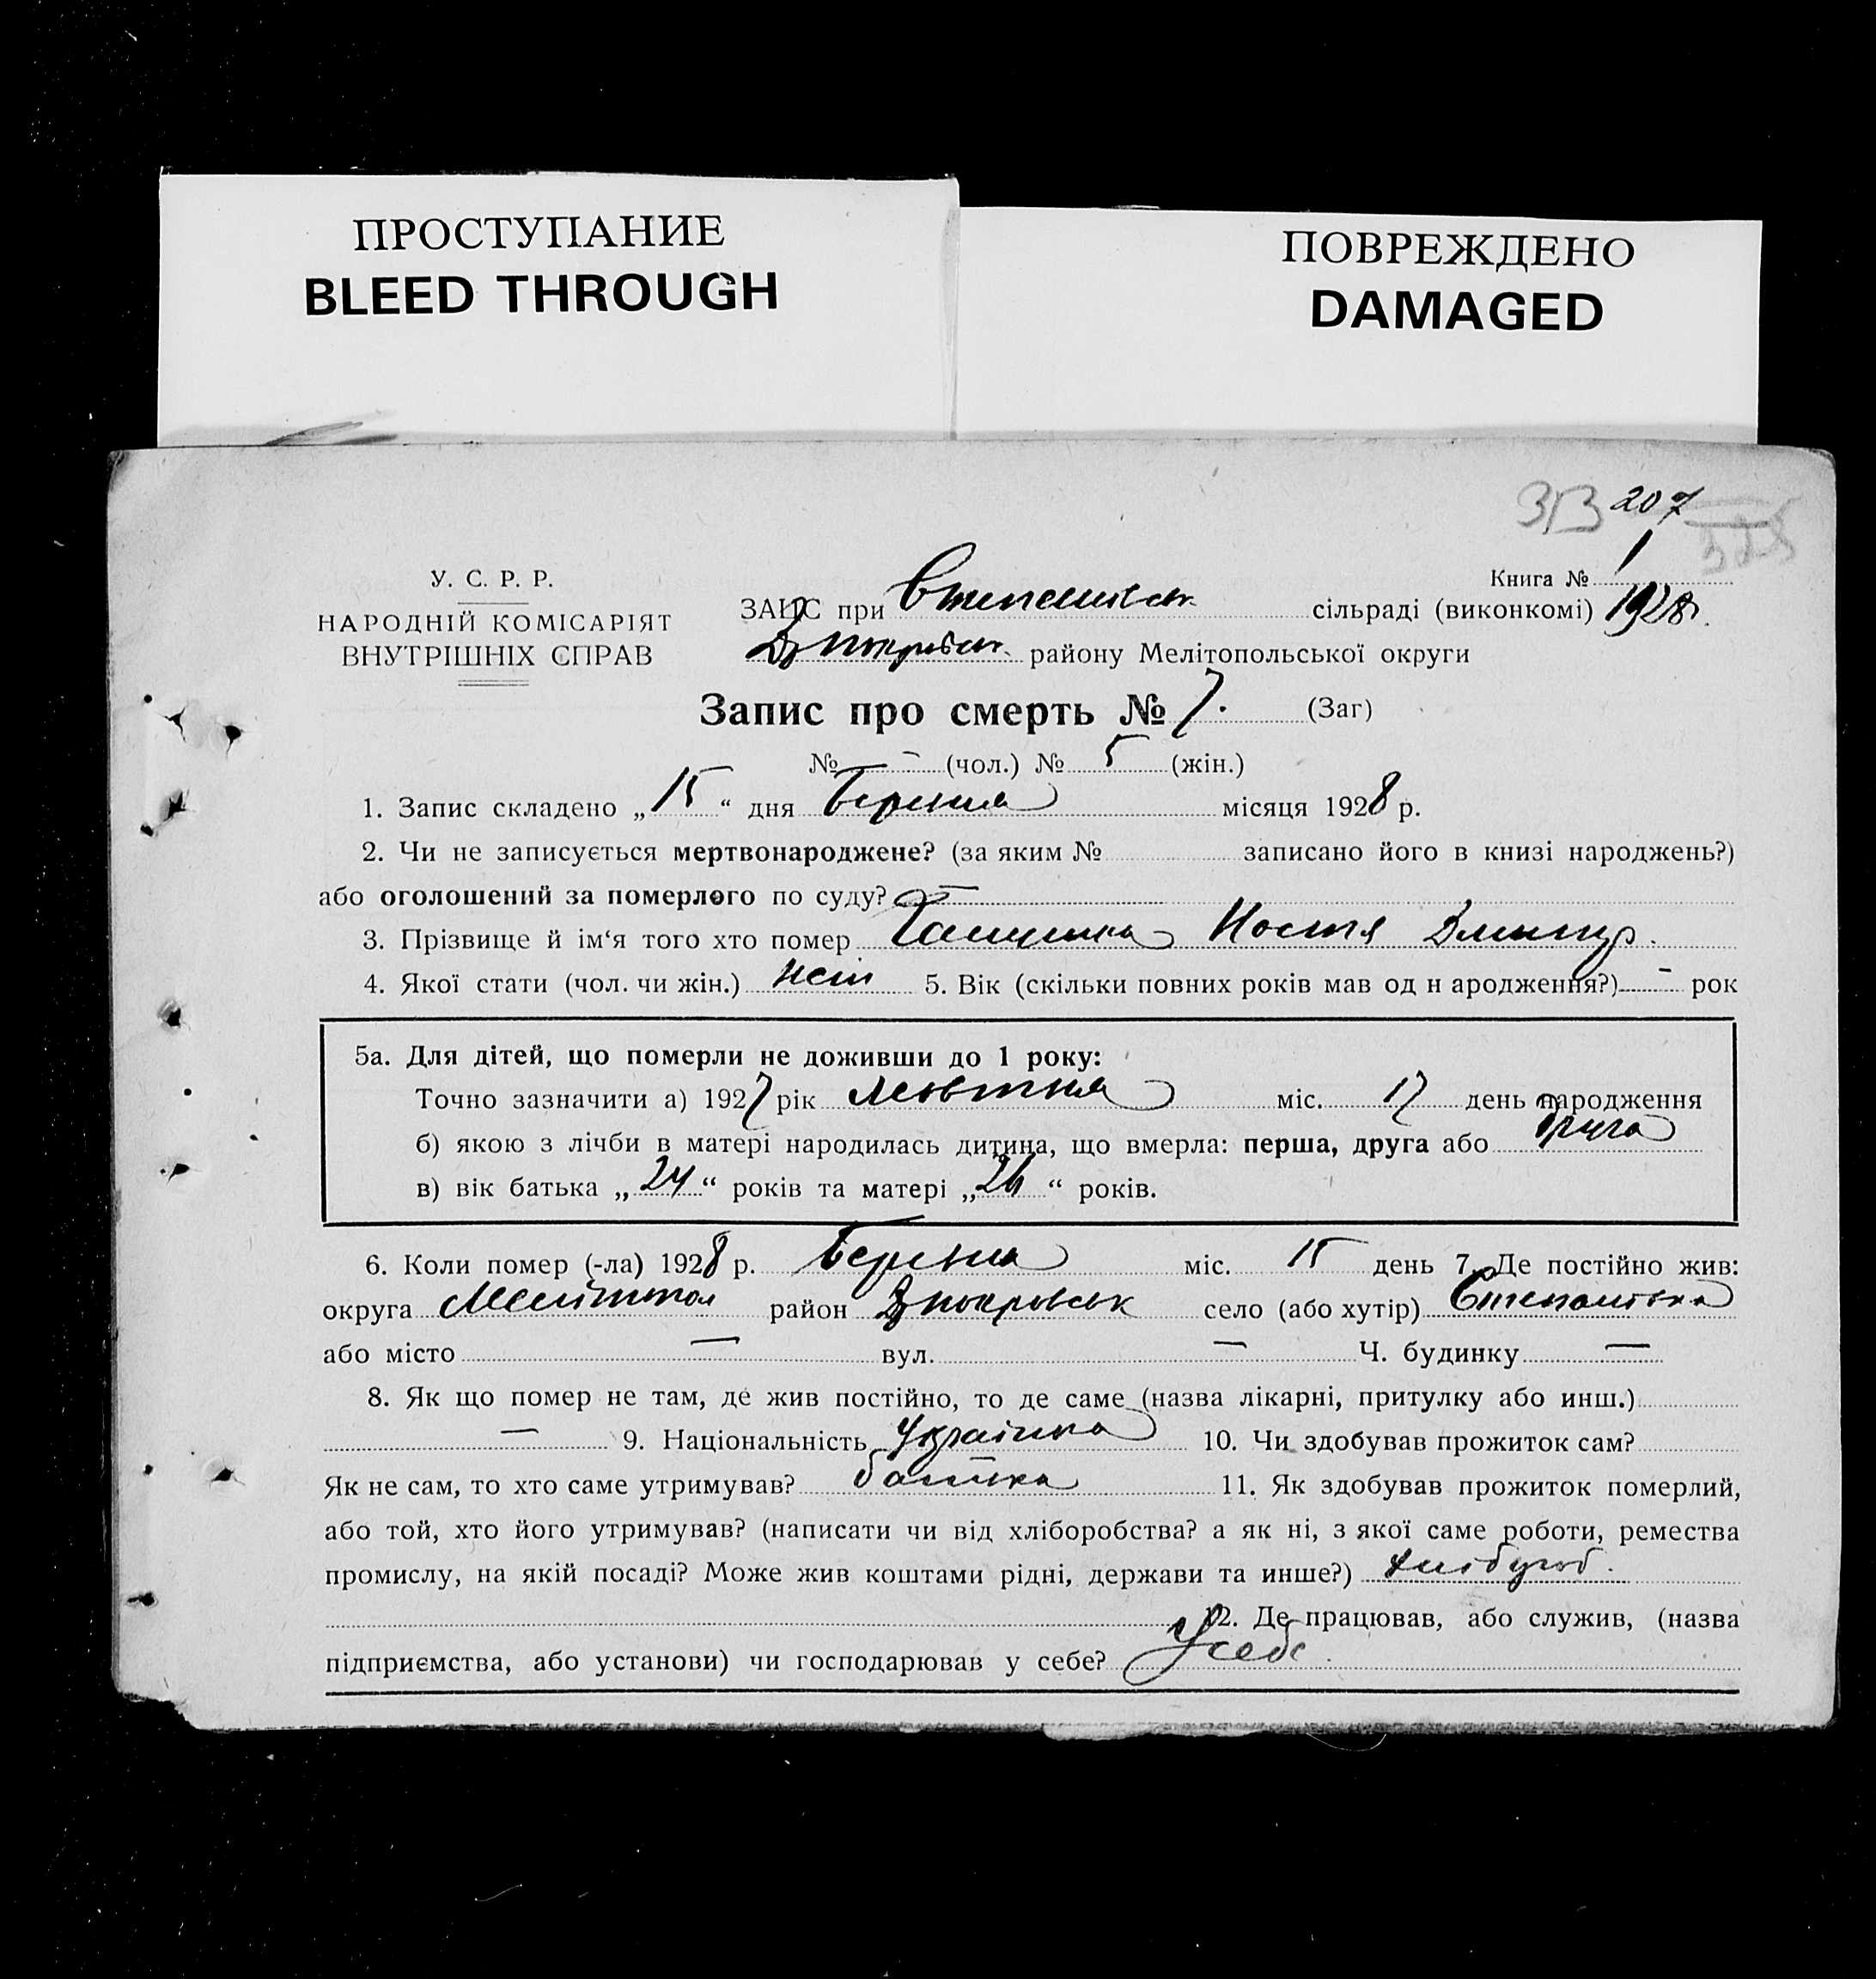 ПРОСТУПАНИЕ
BLEED THROUGH
ПОВРЕЖДЕНО
DAMAGED
313 207 325
У. С. Р. Р.
НАРОДНІЙ КОМІСАРІЯТ
ВНУТРІШНІХ СПРАВ
Книга № 1
ЗАЦС при Степанівськ. сільраді (виконкомі) 1928 г.
покровськ. району Мелітопольської округи
Запис про смерть № 7. (Заг)
№ - (чол.) № 5 (жін.)
1. Запис складено „15“ дня Березня місяця 1928 р.
2. Чи не записується мертвонароджене? (за яким № записано його в книзі народжень?)
або оголошений за померлого по суду? —
3. Прізвище й ім‘я того хто помер Настя
4. Якої стати (чол. чи жін.) жін 5. Вік (скільки повних років мав од н ародження?) - рок
5а. Для дітей, що померли не доживши до 1 року:
Точно зазначити а) 1927 рік Жовтня міс. 17 день народження
б) якою з лічби в матері народилась дитина, що вмерла: перша, друга або друга
в) вік батька „24“ років та матері „26“ років.
6. Коли помер (-ла) 1928 р. Березня міс. 15 день 7. Де постійно жив:
округа Мелітопол район покровськ село (або хутір) Степанівка
або місто — вул. — Ч. будинку —
8. Як що помер не там, де жив постійно, то де саме (назва лікарні, притулку або инш.)
— 9. Національність Українка 10. Чи здобував прожиток сам? —
Як не сам, то хто саме утримував? батько 11. Як здобував прожиток померлий,
або той, хто його утримував? (написати чи від хліборобства? а як ні, з якої саме роботи, ремества
промислу, на якій посаді? Може жив коштами рідні, держави та инше?) хлібороб.
12. Де працював, або служив, (назва
підприємства, або установи) чи господарював у себе? У себе.